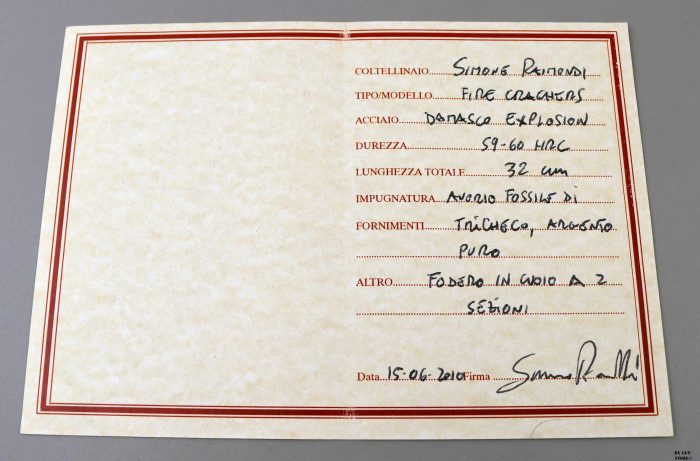 COLTELLINAIO SIMONE RAIMONDI
TIPO/MODELLO FIRE CRACHERS
ACCIAIO DAMASCO EXPLOSION
DUREZZA 59-60 HRC
LUNGHEZZA TOTALE 32 cm
IMPUGNATURA AVORIO FOSSILE DI
FORNIMENTI TRICHECO, ARGENTO
PURO
ALTRO FODERO IN CUOIO A 2
SEZIONI
Data 15-06-2010 Firma Simone Raimondi